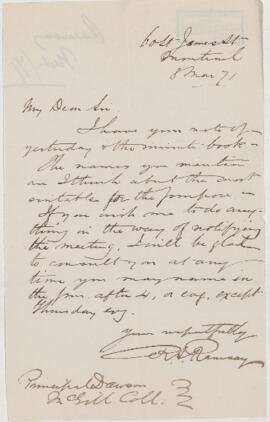 60 St James St
Montreal
8 Mar 71
My Dear Sir
I have your note of
yesterday & the minute-book -
The names you mention
are I think about the most
suitable for the purpose -
If you wish me to do any-
thing in the way of notifying
the meeting, I will be glad
to consult you at any
time you may name in
the after 4, or evg. except
Thursday evg.
Yours respectfully
R A Ramsay
Principal Dawson
McGill Coll.